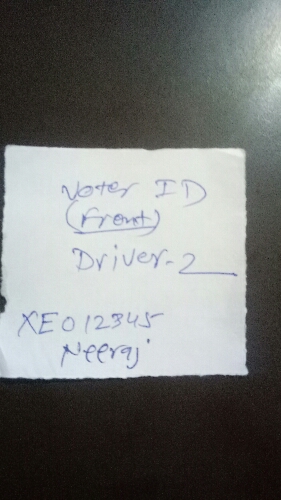 Voter ID
(Front)
Driver-2
XE012345
Neeraj